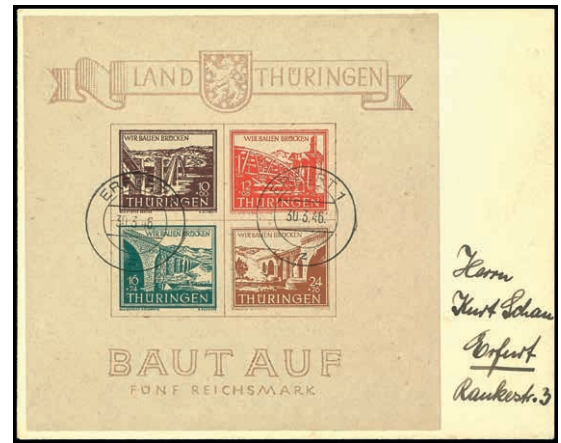 LAND THÜRINGEN
WIR BAUEN BRÜCKEN
10
THÜRINGEN
WIR BAUEN BRÜCKEN
12
THÜRINGEN
ERFURT 1
30.3.46.
30.3.46.
WIR BAUEN BRÜCKEN
16
+24
THÜRINGEN
WIR BAUEN BRÜCKEN
24
+76
THÜRINGEN
BAUT AUF
FÜNF REICHSMARK
Herrn
Kurt Schau
Erfurt
Rankestr. 3